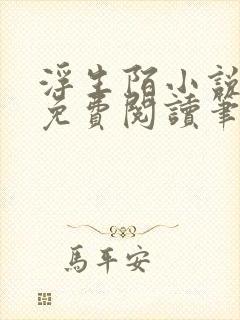 浮生陌小說
免費閱讀筆
馬平安